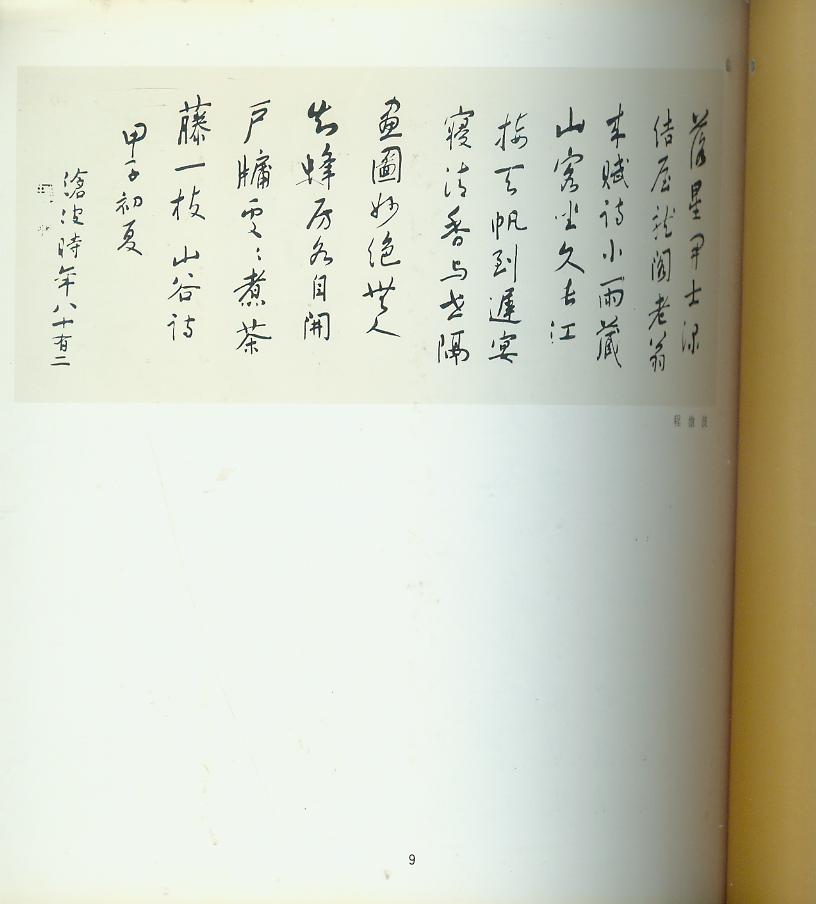 落星開士深
結屋龍閣老翁
來賦詩小雨藏
山客坐久長江
接天帆到遲宴
寢清香與世隔
畫圖妙絕無人
知蜂房各自開
戶牖處々煮茶
藤一枝 山谷詩
甲子初夏
滄波時年八十有二
程滄波
9